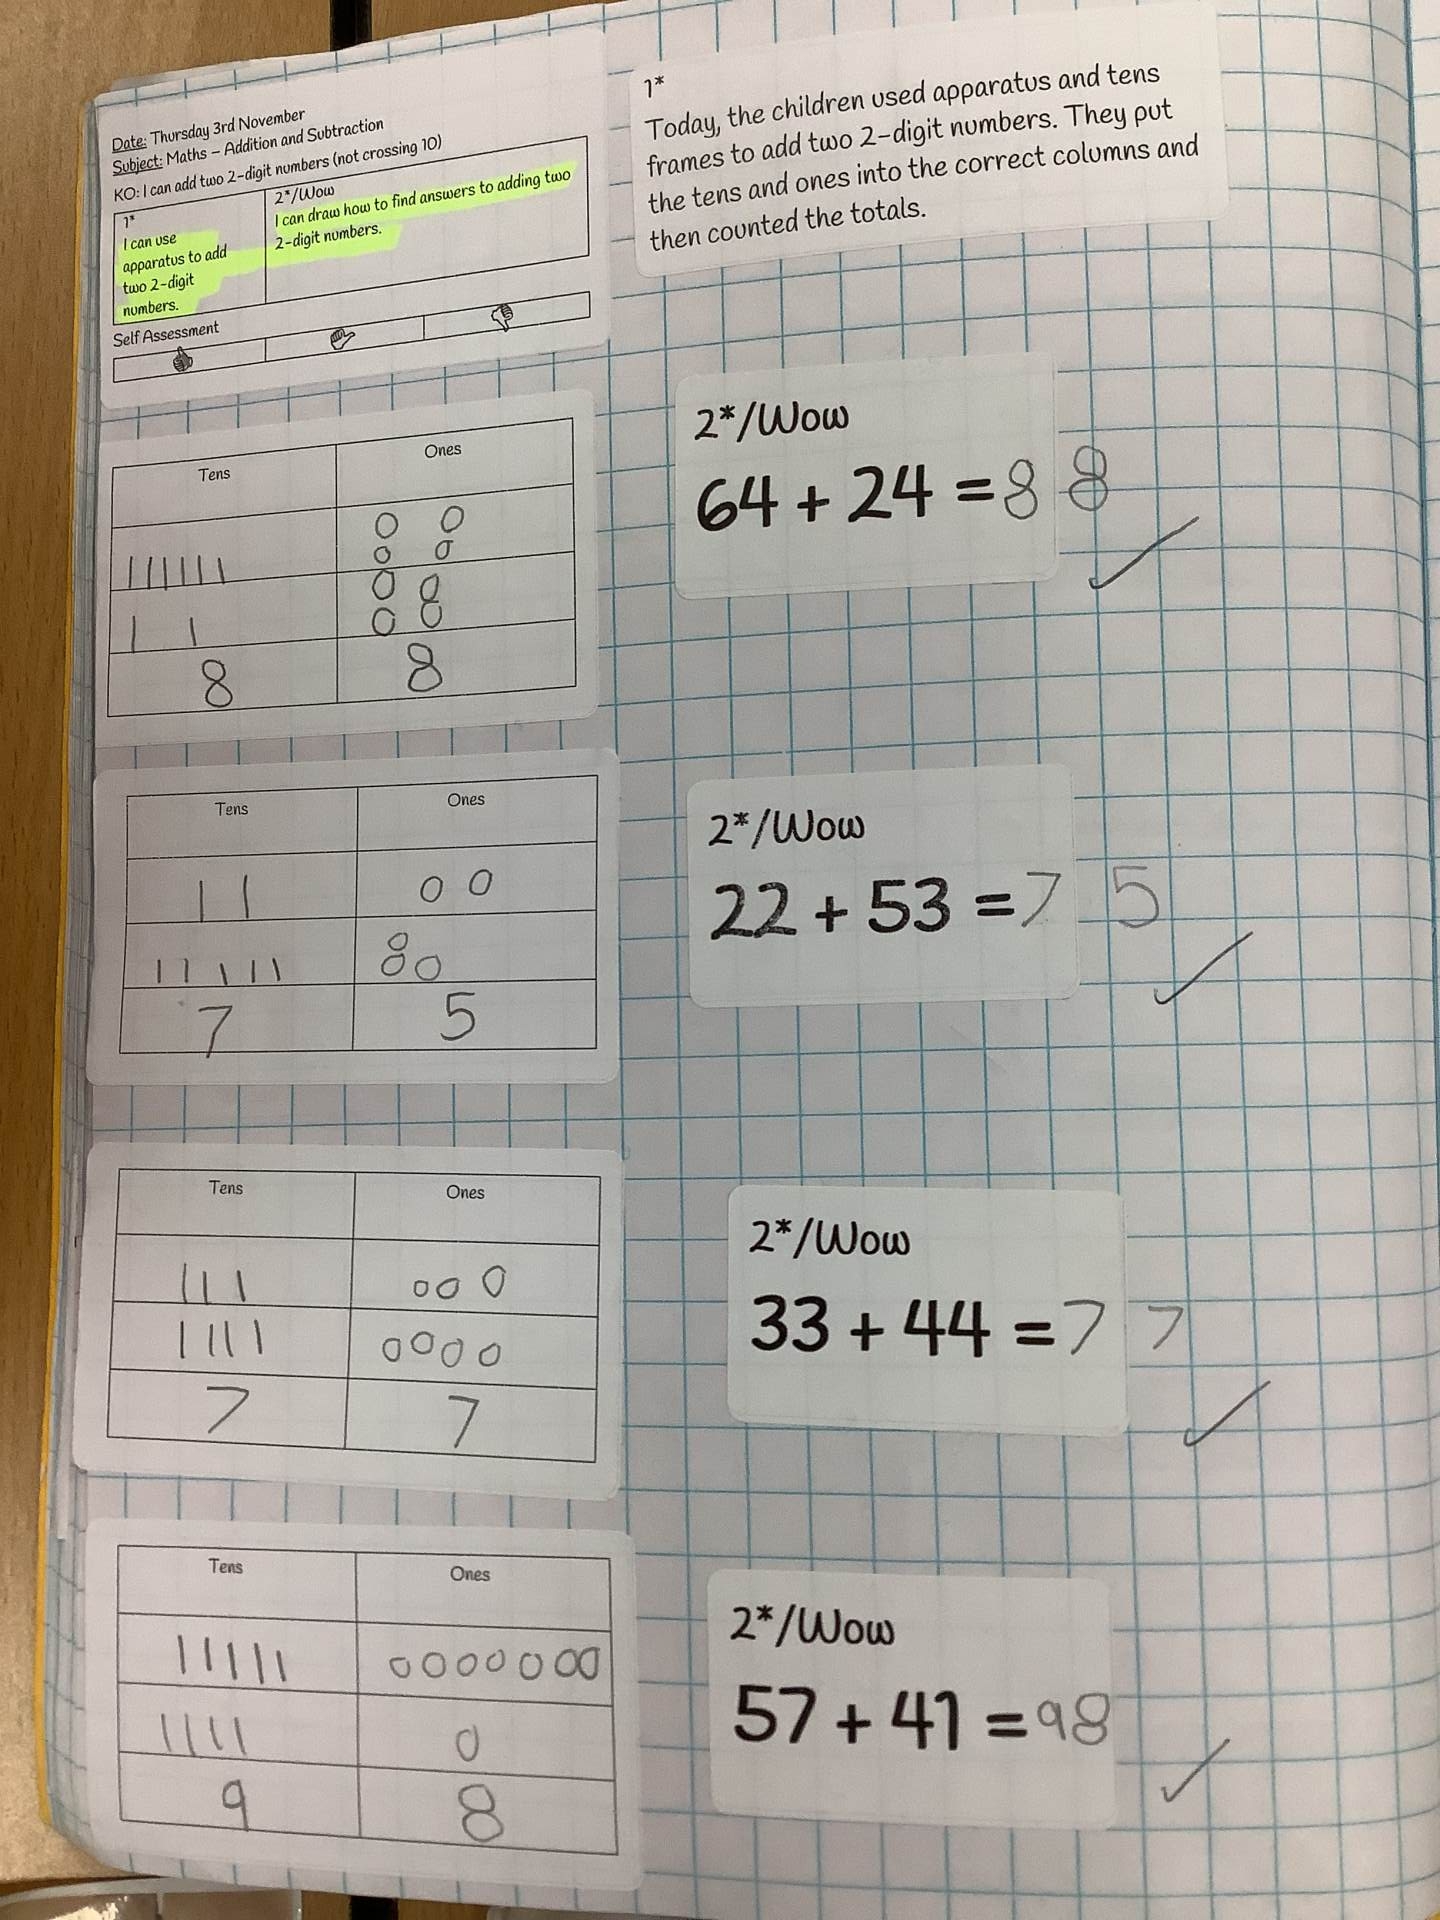 Date: Thursday 3rd November
Subject: Maths – Addition and Subtraction
KO: I can add two 2-digit numbers (not crossing 10)
1*
I can use
apparatus to add
two 2-digit
numbers.
2*/Wow
I can draw how to find answers to adding two
2-digit numbers.
Self Assessment
1*
Today, the children used apparatus and tens
frames to add two 2-digit numbers. They put
the tens and ones into the correct columns and
then counted the totals.
Tens Ones
8 8
2*/Wow
64 + 24 = 8 8
Tens Ones
7 5
2*/Wow
22 + 53 = 7 5
Tens Ones
7 7
2*/Wow
33 + 44 = 7 7
Tens Ones
9 8
2*/Wow
57 + 41 = 98